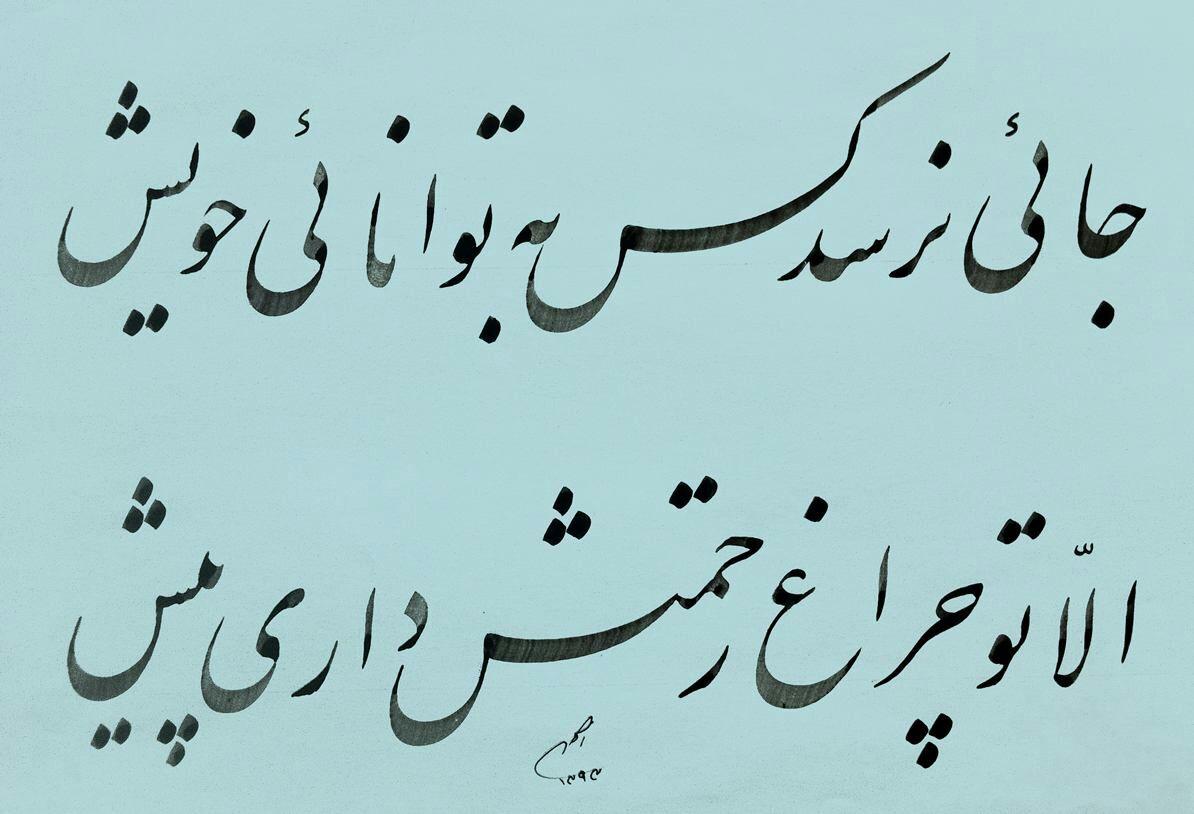 جائی نرسد کس به توانائی خویش
الّا تو چراغ رحمتش داری پیش